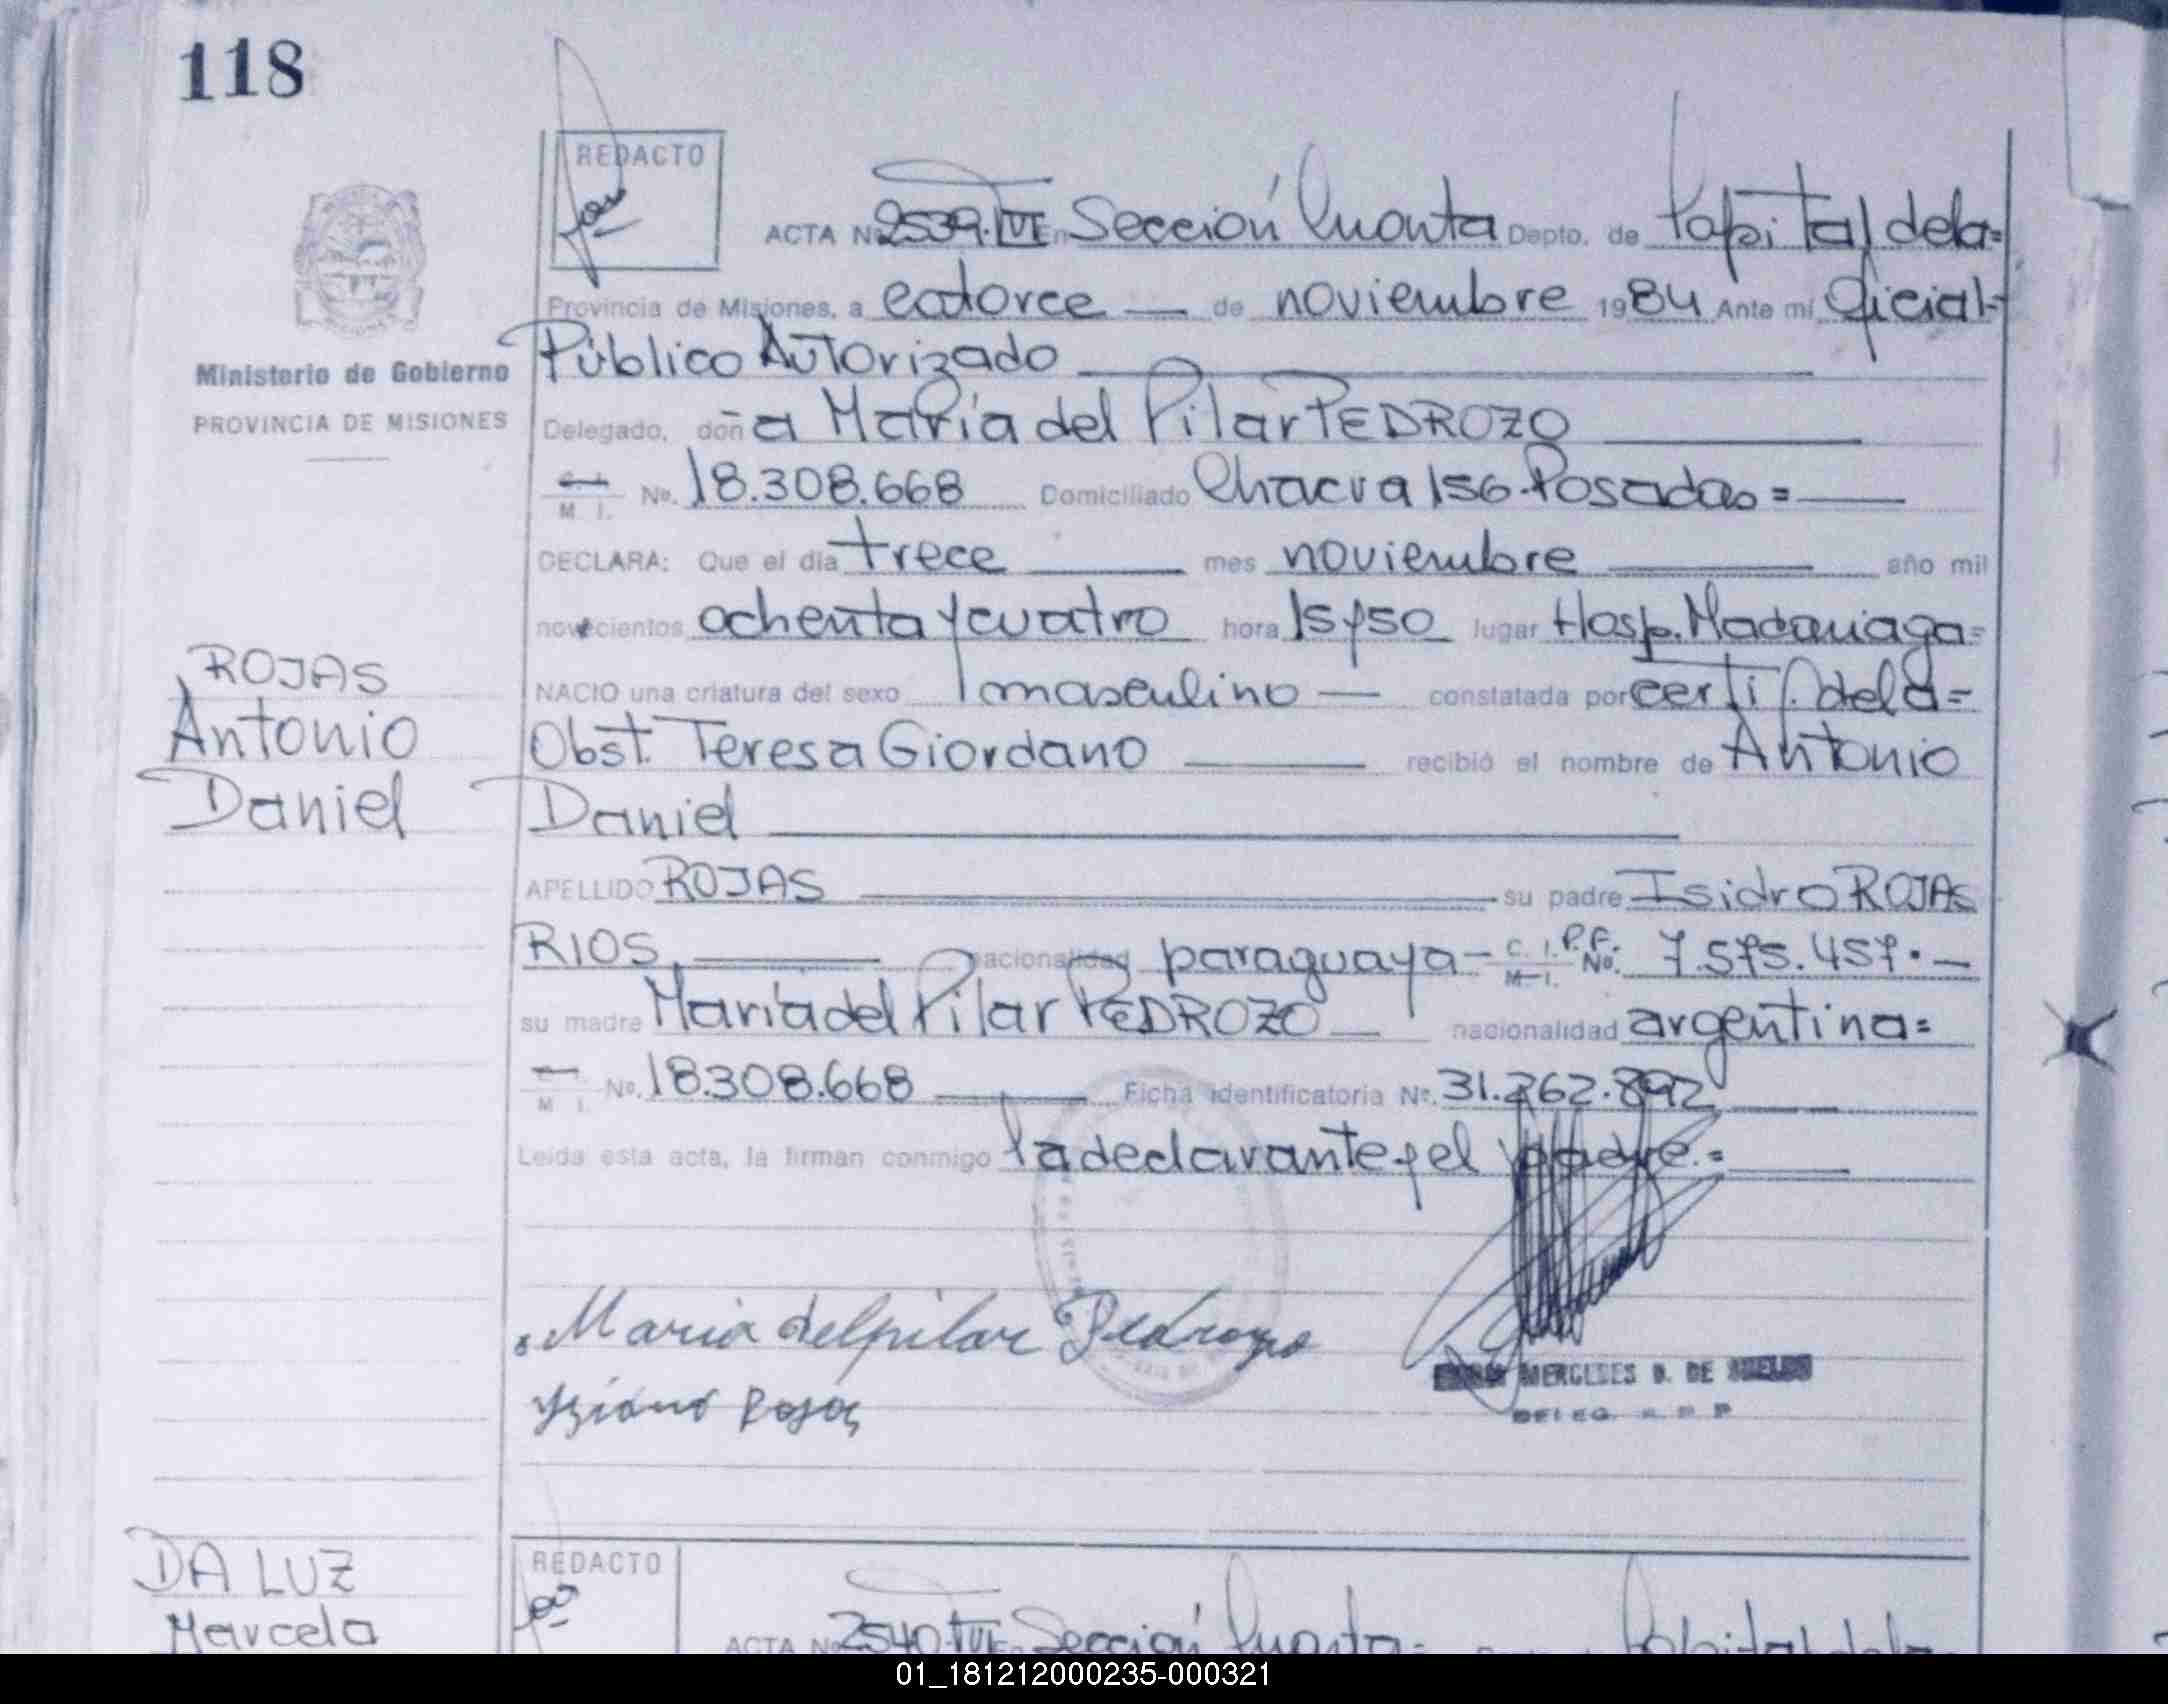 118
REDACTO
ACTA Nº 2539.TVI En Sección Cuarta Depto. de Capital de la=
Provincia de Misiones, a catorce — de noviembre 1984 Ante mi Oficial=
Ministerio de Gobierno
PROVINCIA DE MISIONES
Público Autorizado
Delegado, doña María del Pilar PEDROZO
M. I. No. 18.308.668 Domiciliado Chacra 156-Posadas=
DECLARA: Que el día trece mes noviembre año mil
novecientos ochenta y cuatro hora 15y50 lugar Hosp. Madariaga=
NACIO una criatura del sexo masculino — constatada por certif. de la=
Obst. Teresa Giordano recibió el nombre de Antonio
Daniel
ROJAS
Antonio
Daniel
APELLIDO ROJAS su padre Isidro ROJAS
RIOS, nacionalidad paraguaya- C. I. P.F. No. 7.575.457.-
M. I.
su madre María del Pilar PEDROZO nacionalidad argentina=
M I. No. 18.308.668 Ficha identificatoria Nº. 31.262.892
Leída esta acta, la firman conmigo la declarante y el padre.=
Maria del pilar Pedrozo
Rojas
MERCEDES D. DE
DELEG.
DA LUZ
Marcela
REDACTO
ACTA Nº 2540.TVI En Sección Cuarta= Capital de la
01_181212000235-000321